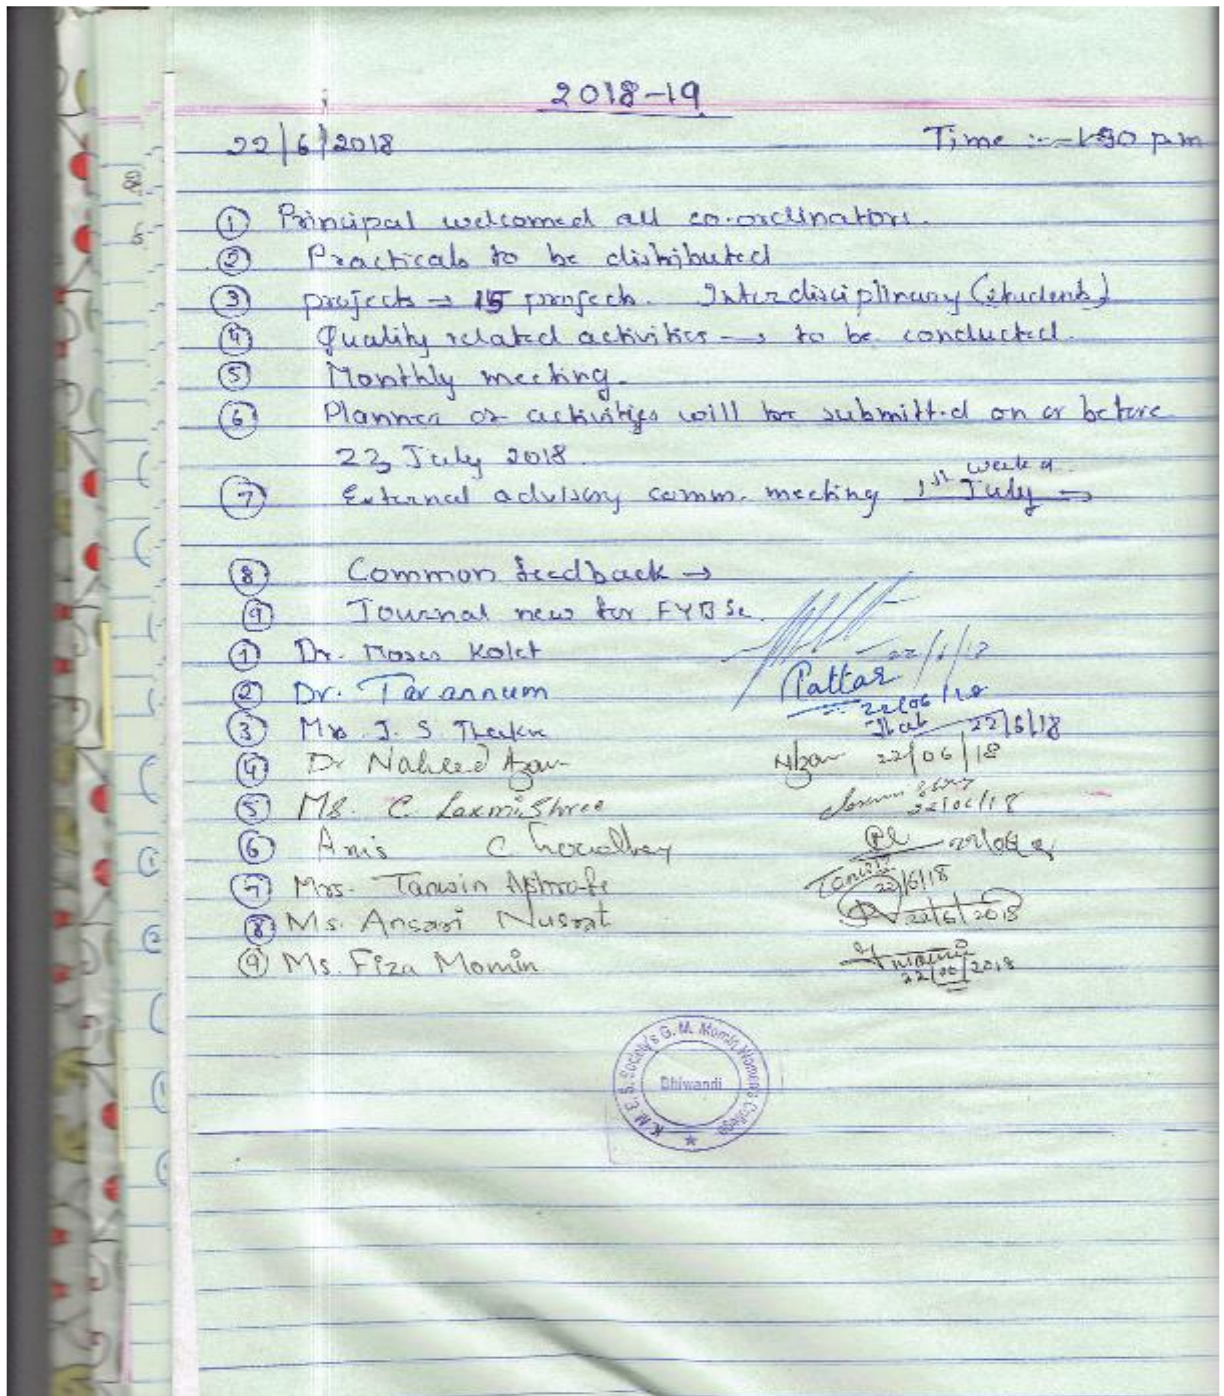 2018-19
22/6/2018 Time :- 1.30 p.m
① Principal welcomed all co-ordinators.
② Practicals to be distributed
③ projects → 15 projects. Interdisciplinary (students)
④ Quality related activities → to be conducted.
⑤ Monthly meeting.
⑥ Planner of activities will be submitted on or before
23 July 2018.
week of
⑦ External advisory comm. meeting 1st July →
⑧ Common feedback →
⑨ Journal new for FYBSc.
① Dr. Moses Kolet 22/6/18
② Dr. Tarannum Pattar
22/06/18
③ J. S. 22/6/18
④ Dr Naheed 22/06/18
⑤ Ms. C. LaxmiShree
22/06/18
⑥ Anis Choudhey
⑦ Mrs. Tanvir
22/6/18
⑧ Ms. Ansari Nusrat 22/6/2018
⑨ Ms. Fiza Momin
22/06/2018
K. M. E. S. Society's G. M. Momin Women's College
Bhiwandi